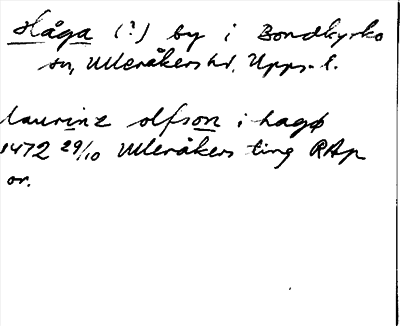 Håga (?) by i Bondkyrko
sn, Ulleråkers hd, Upps. l.
laurinz olfson i hagø
1472 29/10 Ulleråkers ting RAp
or.